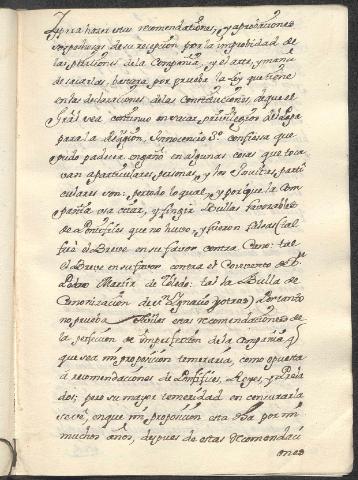 Para hacer estas recomendationes, y aprobationes
de su recepcion por la improbidad de
las peticiones de la Compañia, y el arte, y maña
de sacarlas, bastara por prueba la Ley que tiene
en las declaraciones de las Constituciones, de que el
Gral sea continuo en sacar privilegios del Papa
para la Religion, Innocencio Xo. confiessa que
pudo padecer engaño en algunas cosas que toca
van a particulares personas, y los Jesuitas parti
culares son: por todo lo qual, y porque la Com
pañia usa citar, y fingir Bullas favorables
de Pontifices que no huvo, y fueron falsas (tal
fue el Breve en su favor contra Cano: tal
el Breve en su favor contra el Convento de S.
Pedro Martir de Toledo: tal la Bulla de
Canonizacion de S. Ignacio y otras) Por tanto
no prueba estas recomendationes de
la perfeccion de imperfeccion de la Compañia,
que sea mi proposicion temeraria, como opuesta
a recomendaciones de Pontifices, Reyes, y Prela
dos; pero su mayor temeridad en censurarla
se ve, en que mi proposicion esta dha por mi
muchos años, despues de estas recomendaci
ones